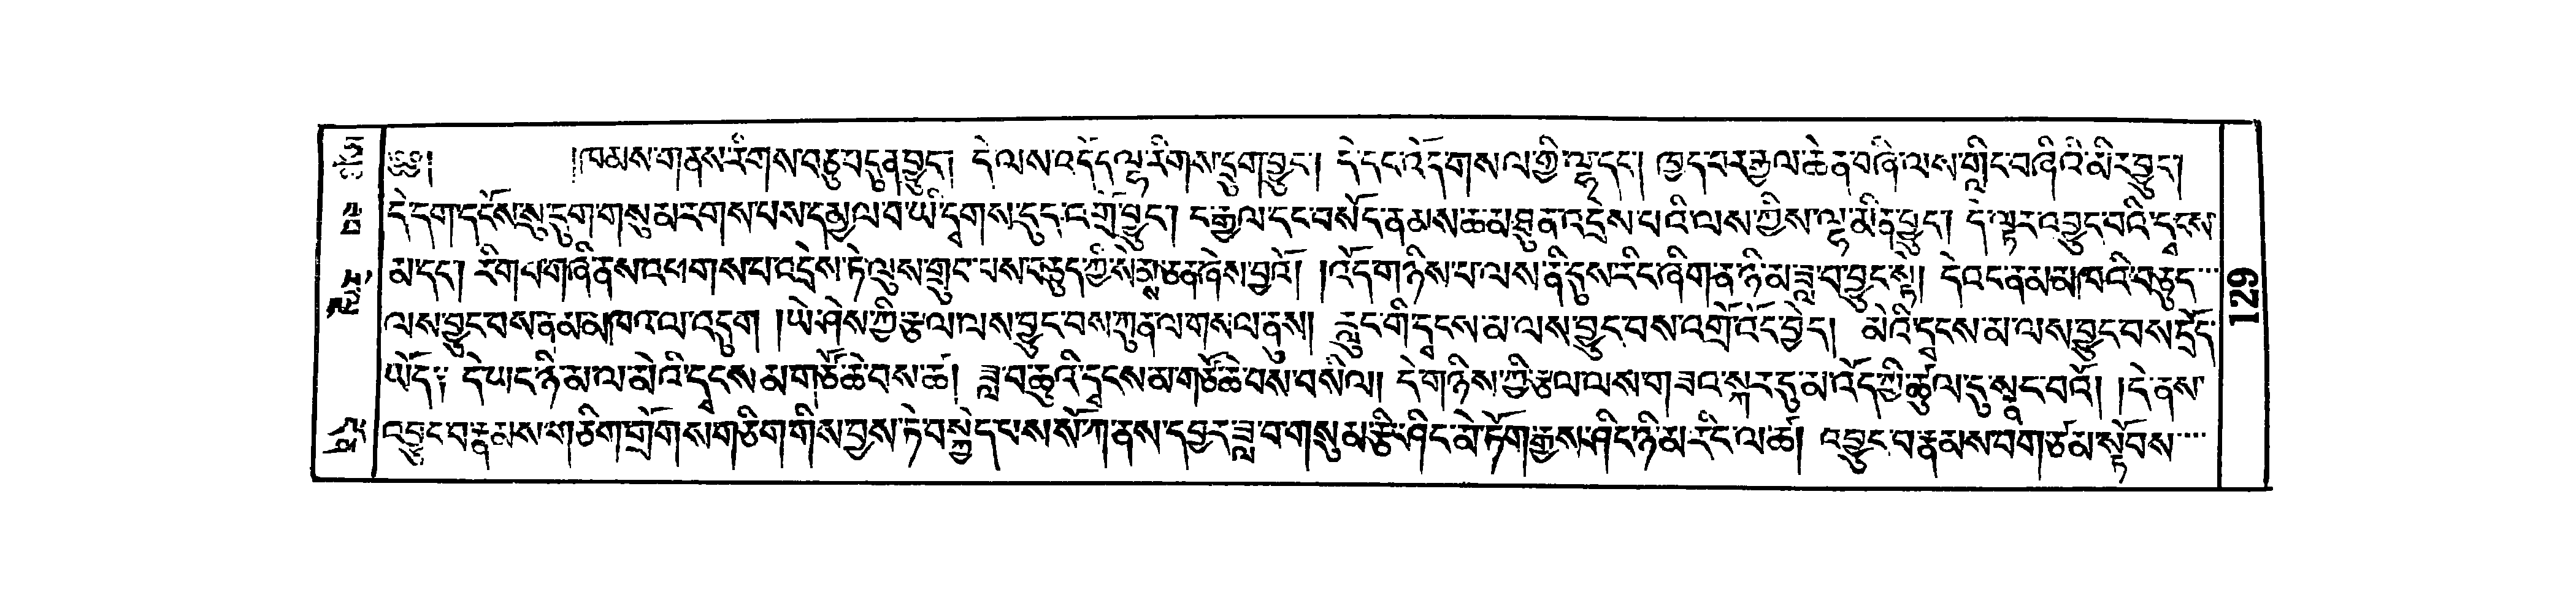 ༄༅། །ཁམས་གནས་རིགས་བཅུ་བདུན་བྱུང། དེ་ལས་འདོད་ལྷ་རིགས་དྲུག་བྱུང་། དེ་དང་འོད་གསལ་གྱི་ལྷ་དང་། ཁྱད་པར་རྒྱལ་ཆེན་བཞི་ལས་གླིང་བཞིའི་མིར་བྱུང།
དེ་དག་དངོས་སུ་དུག་གསུམ་དགས་པས་དམྱལ་བ་ཡི་དྭགས་དུད་འགྲོ་བྱུང། ང་རྒྱལ་དང་བསོད་ནམས་ཆ་མཐུན་འདྲེས་པའི་ལས་ཀྱིས་ལྷ་མིན་བྱུང། དེ་ལྟར་འབྱུང་བའི་དྭངས་
མ་དང། རིག་པ་གཞི་ནས་འཕགས་པ་འདྲེས་ཏེ་ལུས་གྲུང་པས་བཅུད་ཀྱི་སེམས་ཅན་ཞེས་བྱའོ། །འོད་གཉིས་པ་ལས་ནི་དུས་རིང་ཞིག་ན་ཉི་མ་ཟླ་བ་བྱུང་སྟེ། དེའང་ནམ་མཁའི་བཅུད་
ལས་བྱུང་བས་ནམ་མཁའ་ལ་འདུག །ཡེ་ཤེས་ཀྱི་རྩལ་ལས་བྱུང་བས་ཀུན་ལ་གསལ་ནུས། རླུང་གི་དྭངས་མ་ལས་བྱུང་བས་འགྲོ་འོད་བྱེད། མེའི་དྭངས་མ་ལས་བྱུང་བས་དྲོད་
ཡོད། དེ་ཡང་ཉི་མ་ལ་མེའི་དྭངས་མ་གཙོ་ཆེ་བས་ཚ། ཟླ་བ་ཆུའི་དྭངས་མ་གཙོ་ཆེ་བས་བསིལ། དེ་གཉིས་ཀྱི་རྩལ་ལས་གཟའ་སྐར་དུ་མ་འོད་ཀྱི་ཚུལ་དུ་སྣང་བའོ། །དེ་ནས་
འབྱུང་བ་རྣམས་གཅིག་གྲོགས་གཅིག་གིས་བྱས་ཏེ་བསྐྱེད་པས་སོ་ཀ་ནས་དབྱར་ཟླ་བ་གསུམ་རྩི་ཤིང་མེ་ཏོག་རྒྱས་ཤིང་ཉི་མ་རིང་ལ་ཚ། འབྱུང་བ་རྣམས་བག་ཙམ་སྟོབས་